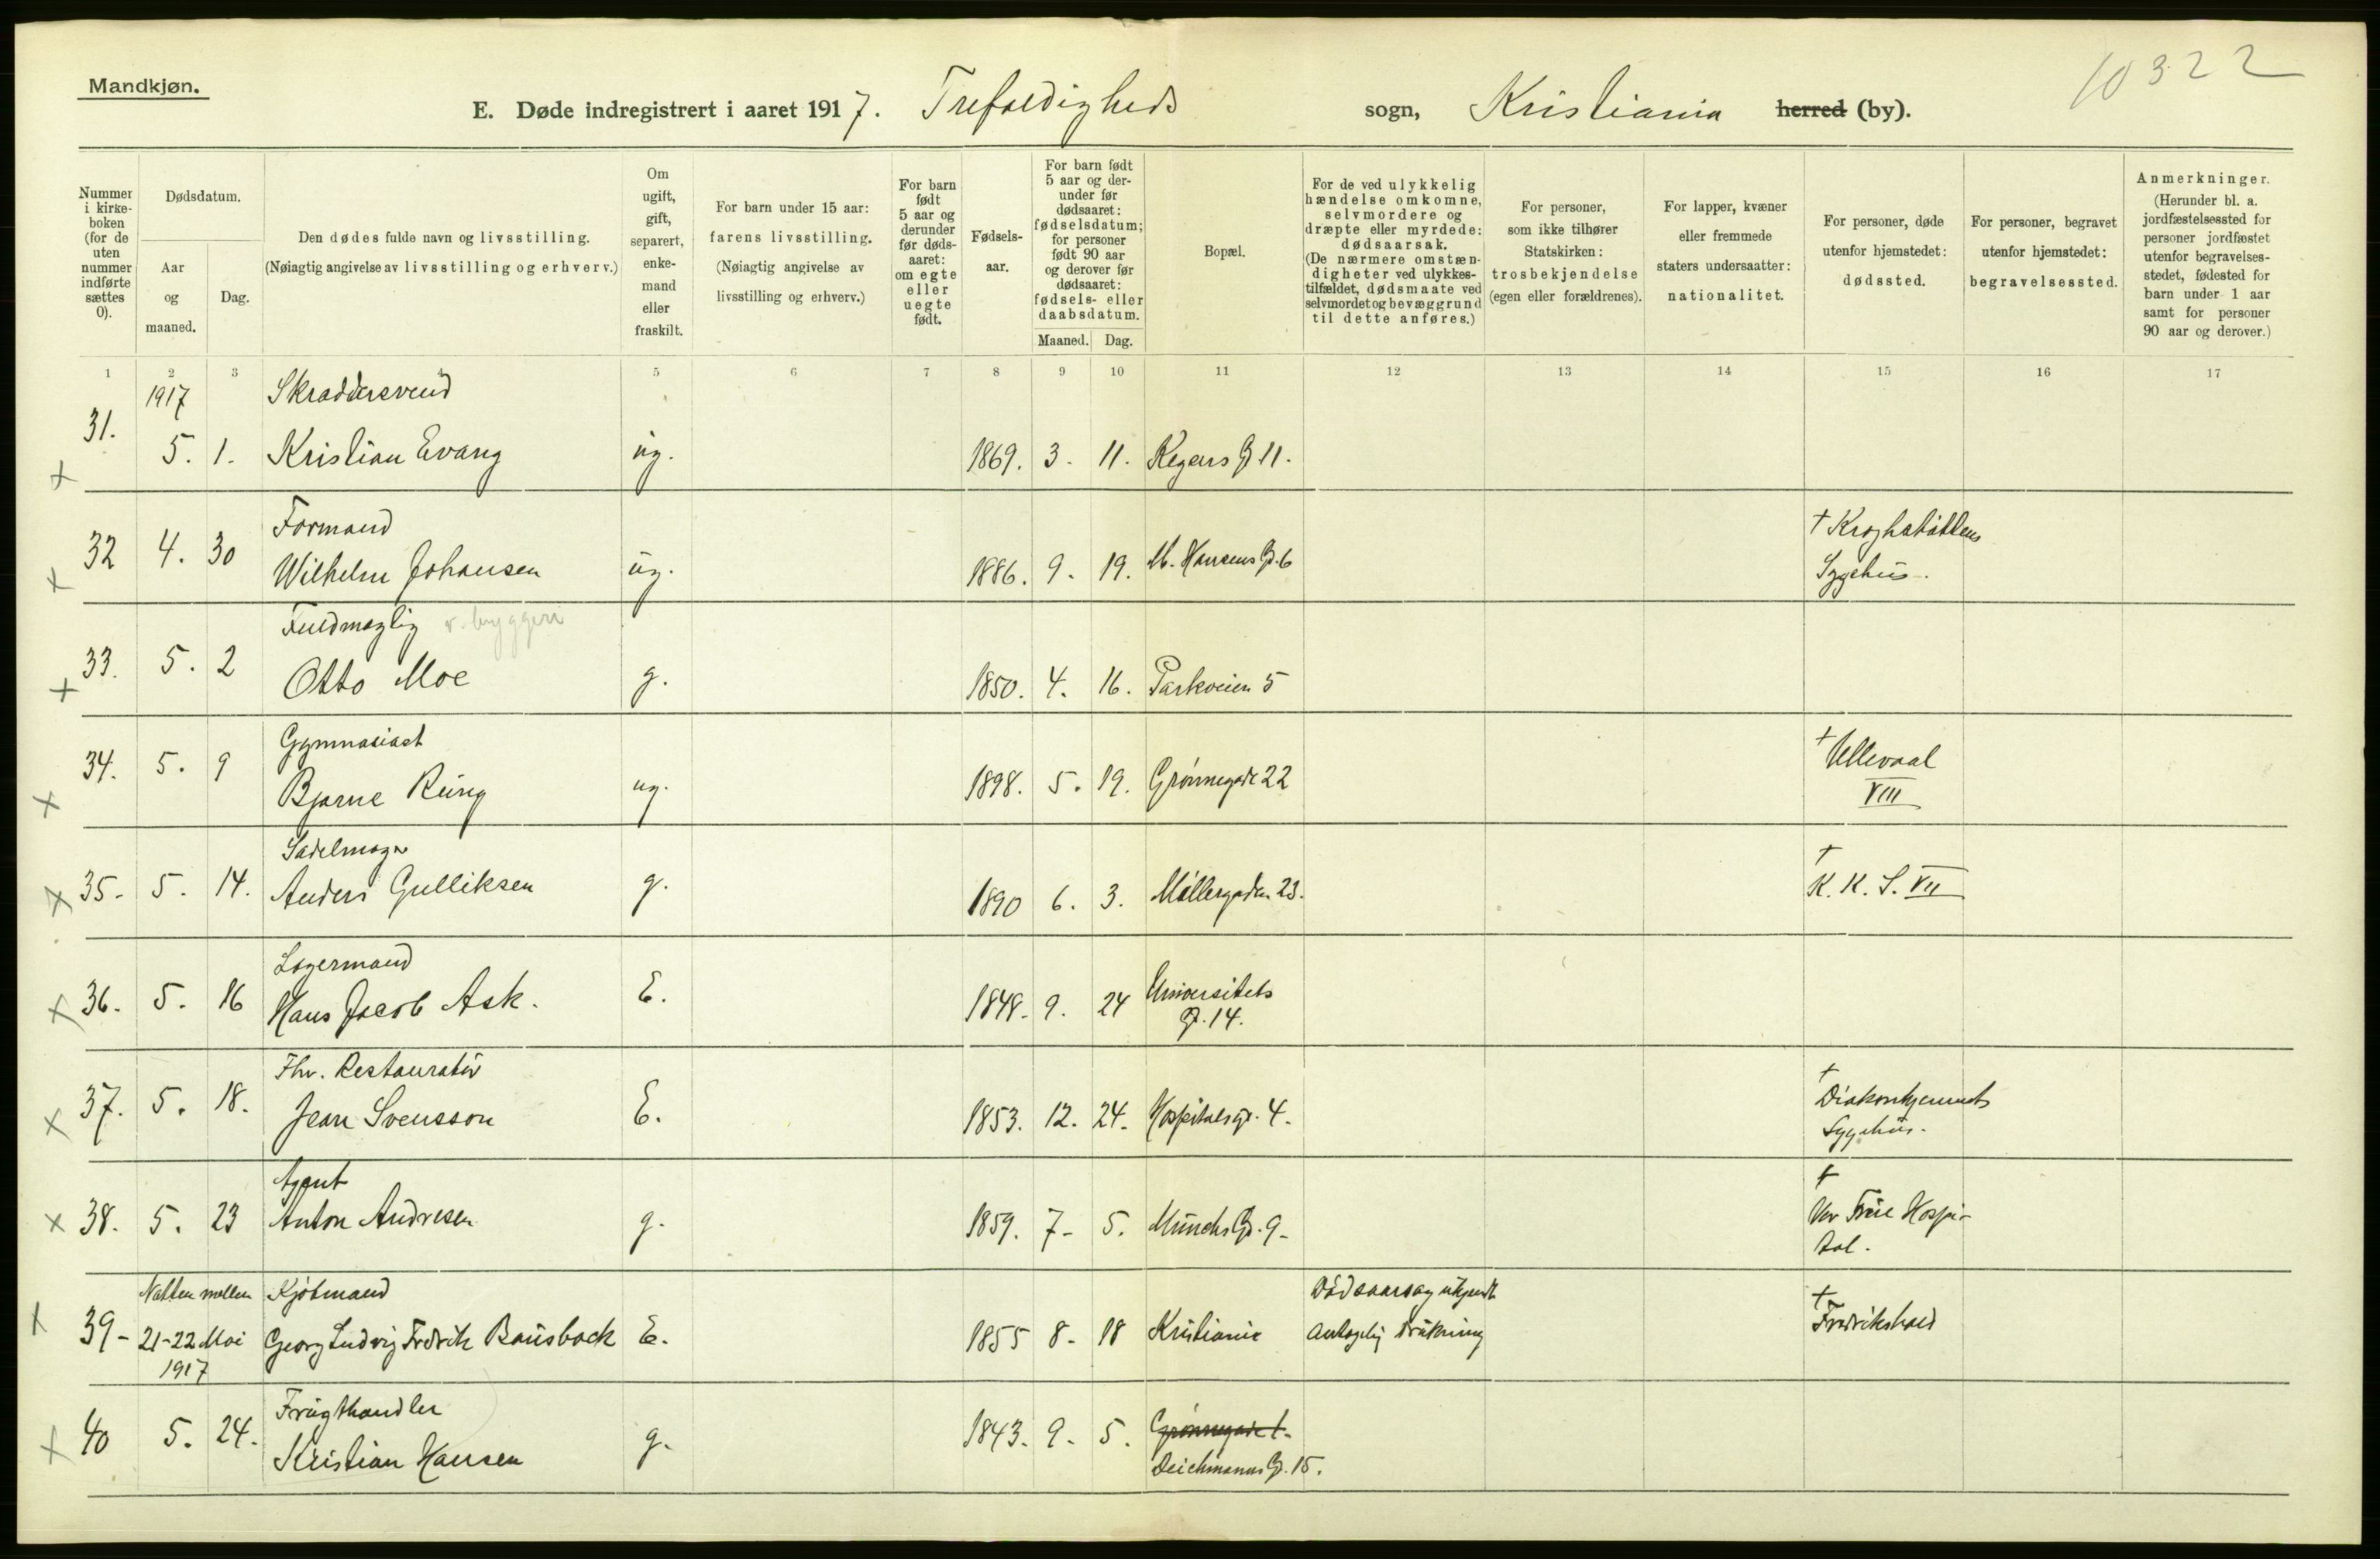 10322
Mandkjøn.
E. Døde indregistrert i aaret 1917. Trefoldigheds sogn, Kristiania herred (by).
Nummer i kirkeboken (for de uten nummer indførte sættes 0).
Dødsdatum.
Aar og maaned.
Dag.
Den dødes fulde navn og livsstilling.
(Nøiagtig angivelse av livsstilling og erhverv.)
Om ugift, gift, separert, enkemand eller fraskilt.
For barn under 15 aar: farens livsstilling.
(Nøiagtig angivelse av livsstilling og erhverv.)
For barn født 5 aar og derunder før dødsaaret: om egte eller uegte født.
Fødselsaar.
For barn født 5 aar og derunder før dødsaaret: fødselsdatum; for personer født 90 aar og derover før dødsaaret: fødsels- eller daabsdatum.
Maaned. Dag.
Bopæl.
For de ved ulykkelig hændelse omkomne, selvmordere og dræpte eller myrdede: dødsaarsak.
(De nærmere omstændigheter ved ulykkestilfældet, dødsmaate ved selvmordet og bevæggrund til dette anføres.)
For personer, som ikke tilhører Statskirken: trosbekjendelse (egen eller forældrenes).
For lapper, kvæner eller fremmede staters undersaatter: nationalitet.
For personer, døde utenfor hjemstedet: dødssted.
For personer, begravet utenfor hjemstedet: begravelsessted.
Anmerkninger.
(Herunder bl. a. jordfæstelsessted for personer jordfæstet utenfor begravelsesstedet, fødested for barn under 1 aar samt for personer 90 aar og derover.)
1 2 3 5 6 7 8 9 10 11 12 13 14 15 16 17
1917 Skraddersvend
31. 5. 1. Kristian Evang ug. 1869. 3. 11. Keysers G 11.
Formand
32 4. 30 Wilhelm Johansen ug. 1886. 9. 19. M. Hansens G. 6 † Kroghstøttens Sygehus.
Fuldmægtig v. byggeri
33. 5. 2 Otto Moe g. 1850. 4. 16. Parkveien 5
Gymnasiast
34. 5. 9 Bjarne Ring ug. 1898. 5. 19. Grønnegade 22 † Ullevaal VIII
Sadelmager
35- 5. 14. Anders Gulliksen g. 1890 6. 3. Møllergaden 23. † K. K. S. VII
Lagermand
36. 5. 16 Hans Jacob Ask. E. 1848. 9. 24 Universitets G. 14.
Fhv. Restauratør
37. 5. 18. Jean Svensson E. 1853. 12. 24. Hospitalsg. 4. † Diakonhjemmets Sygehus.
Agent
38. 5. 23 Anton Andresen g. 1859. 7- 5. Munchs G. 9- † Vor Frue Hospital.
Natten mellem Kjøbmand
39- 21-22 Mai 1917 Georg Ludvig Fredrik Bausback E. 1855 8. 18 Kristiania Dødsaarsag ukjendt Antagelig drukning † Fredrikshald
Frugthandler
40 5. 24. Kristian Hansen g. 1843. 9. 5. Grønnegade 1. Deichmans G. 15.